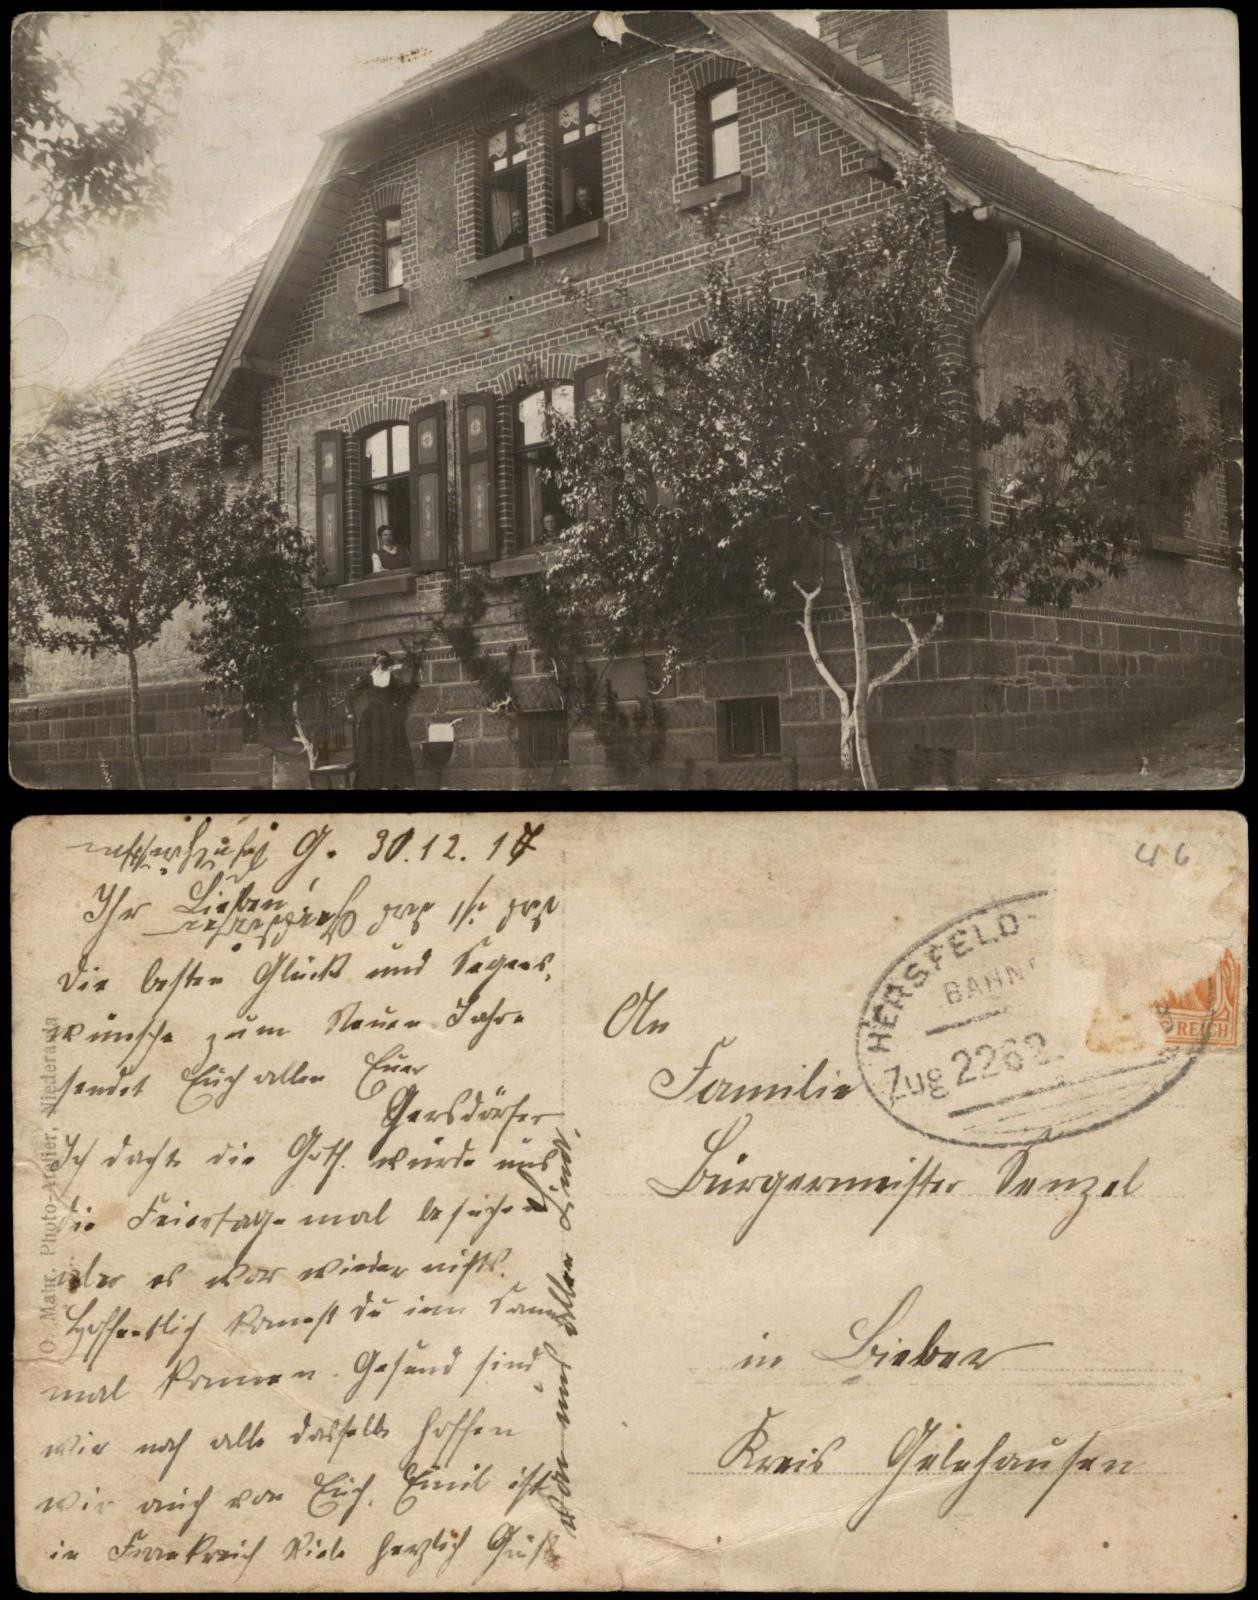 G. 30.12.17
Ihr Lieben!
Die besten Glück und Segens-
wünsche zum Neuen Jahre
sendet Euch allen Euer
Gersdörfer
Ich dachte die Goth. würde uns
die Feiertage mal besuchen
aber es war wieder nichts.
Hoffentlich kannst Du im
mal kommen. Gesund sind
wir noch alle dasselbe hoffen
wir auch von Euch. Emil ist
in Frankreich Viele herzlich Grüße
von uns allen
O. Mahr, Photo-Atelier, Niederaula
46
HERSFELD
BAHN
Zug 2262
REICH
An
Familie
Bürgermeister Senzel
in Bieber
Kreis Gelnhausen